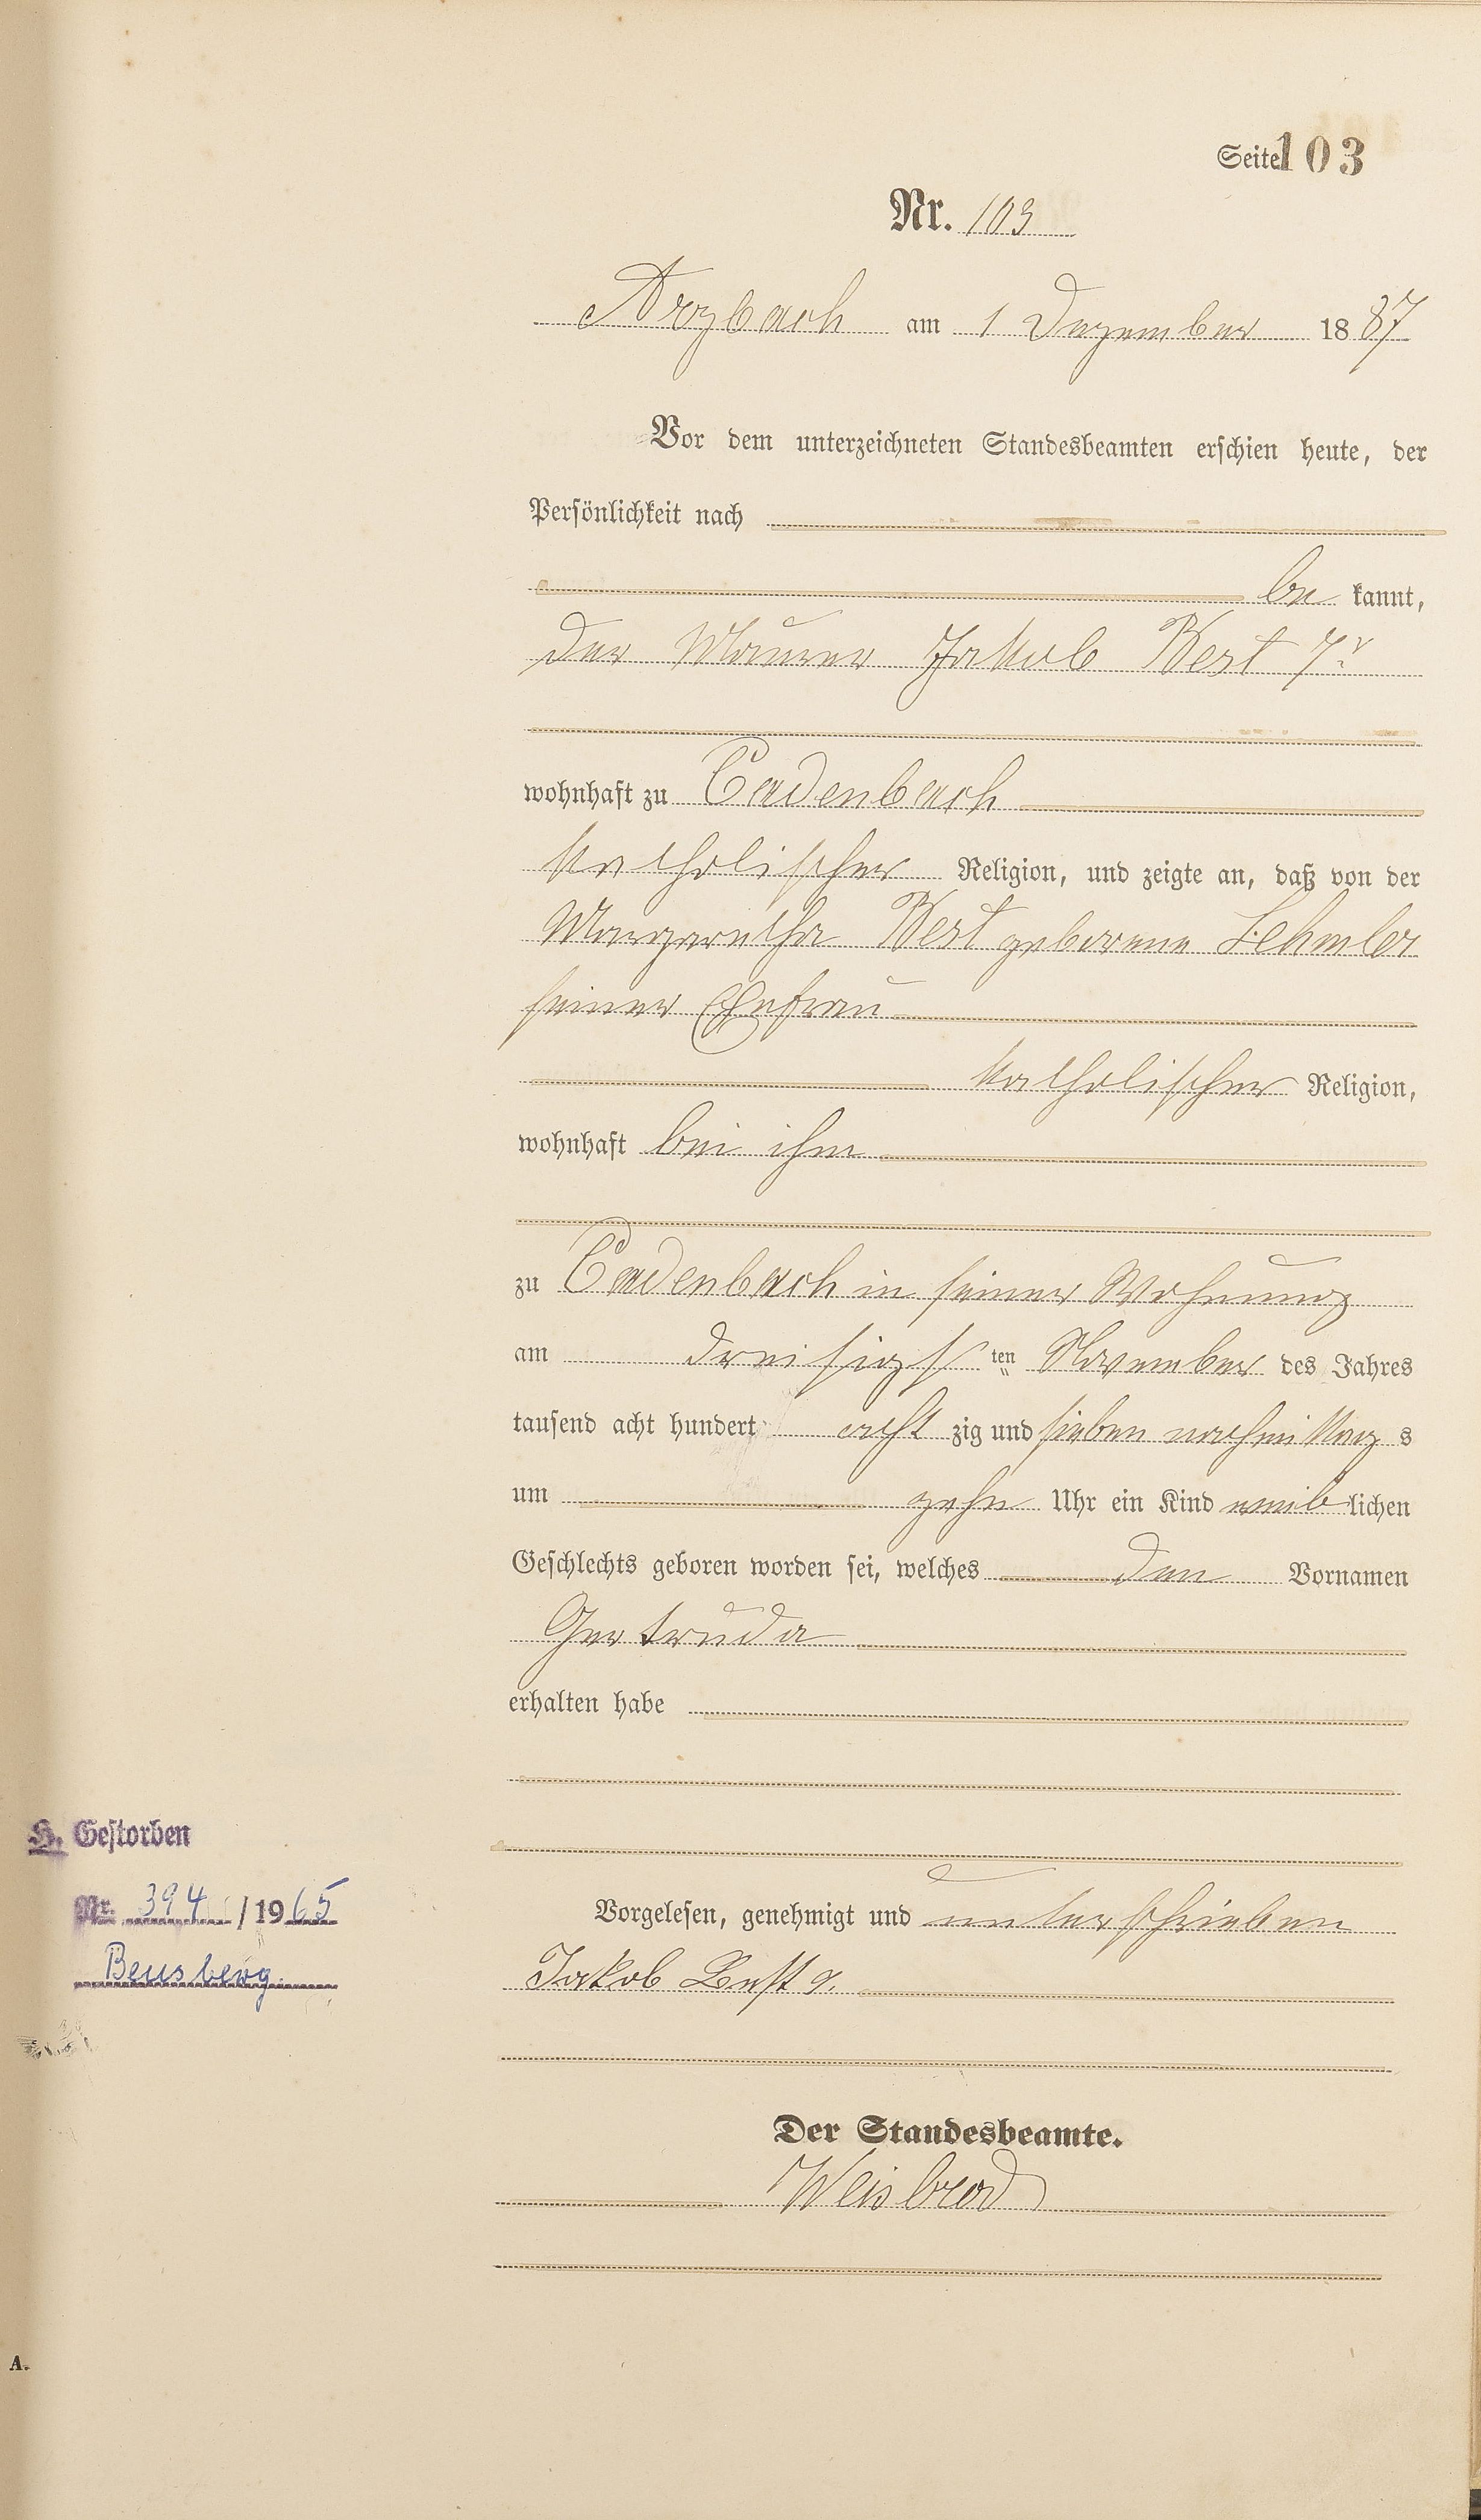 Seite 103
Nr. 103
Arzbach am 1 Dezember 1887
Vor dem unterzeichneten Standesbeamten erschien heute, der
Persönlichkeit nach
be kannt,
der Maurer Jakob Best 7r
wohnhaft zu Cadenbach
katholischer Religion, und zeigte an, daß von der
Margaretha Best geborene Lehmler
seiner Ehefrau
katholischer Religion,
wohnhaft bei ihm
zu Cadenbach in seiner Wohnung
am dreisigsten November des Jahres
tausend acht hundert acht zig und sieben nachmittags
um zehn Uhr ein Kind weiblichen
Geschlechts geboren worden sei, welches den Vornamen
Gertruda
erhalten habe
H. Gestorben
Nr. 394 / 1965
Bensberg
Vorgelesen, genehmigt und unterschrieben
Jakob Best
Der Standesbeamte.
Weisbrod
A.